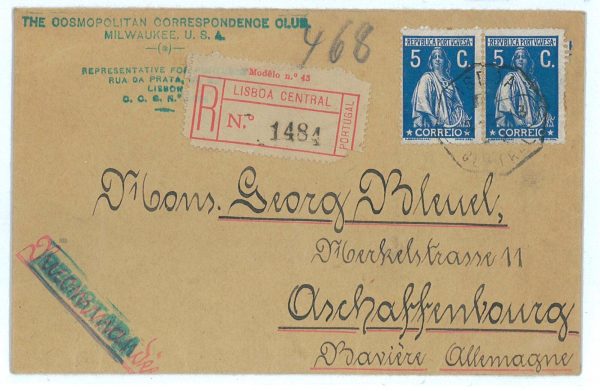 THE COSMOPOLITAN CORRESPONDENCE CLUB.
MILWAUKEE, U. S. A.
(a)
REPRESENTATIVE FOR
RUA DA PRATA,
LISBON
C. C. S. N.º
468
Modêlo n.º 43
R
LISBOA CENTRAL
N.º 1484
PORTUGAL
REPUBLICA PORTUGUESA
5 C.
CORREIO
REPUBLICA PORTUGUESA
5 C.
CORREIO
Mons. Georg Bleuel,
Merkelstrasse 11
Aschaffenbourg
Bavière Allemagne
REGISTADA